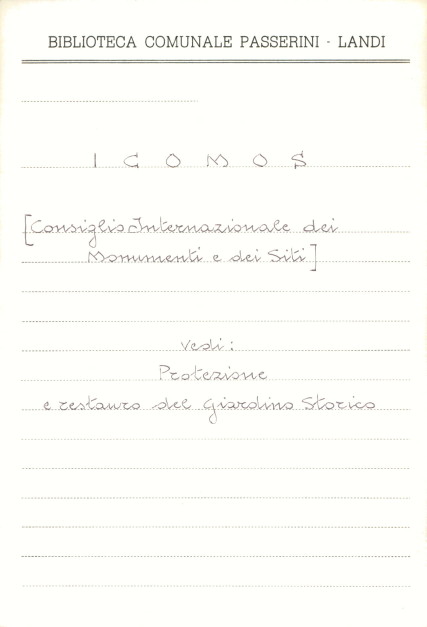 BIBLIOTECA COMUNALE PASSERINI - LANDI
I C O M O S
[Consiglio Internazionale dei
Monumenti e dei Siti]
Vedi:
Protezione
e restauro del Giardino Storico